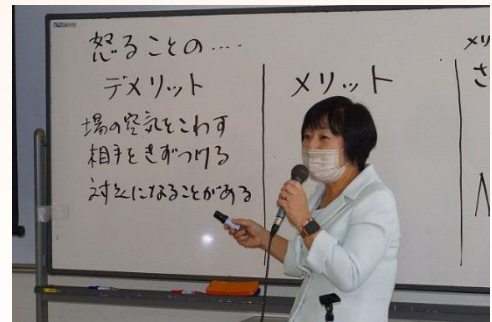 怒ることの....
デメリット
場の空気をこわす
相手をきずつける
になることがある
メリット
メリ
さ